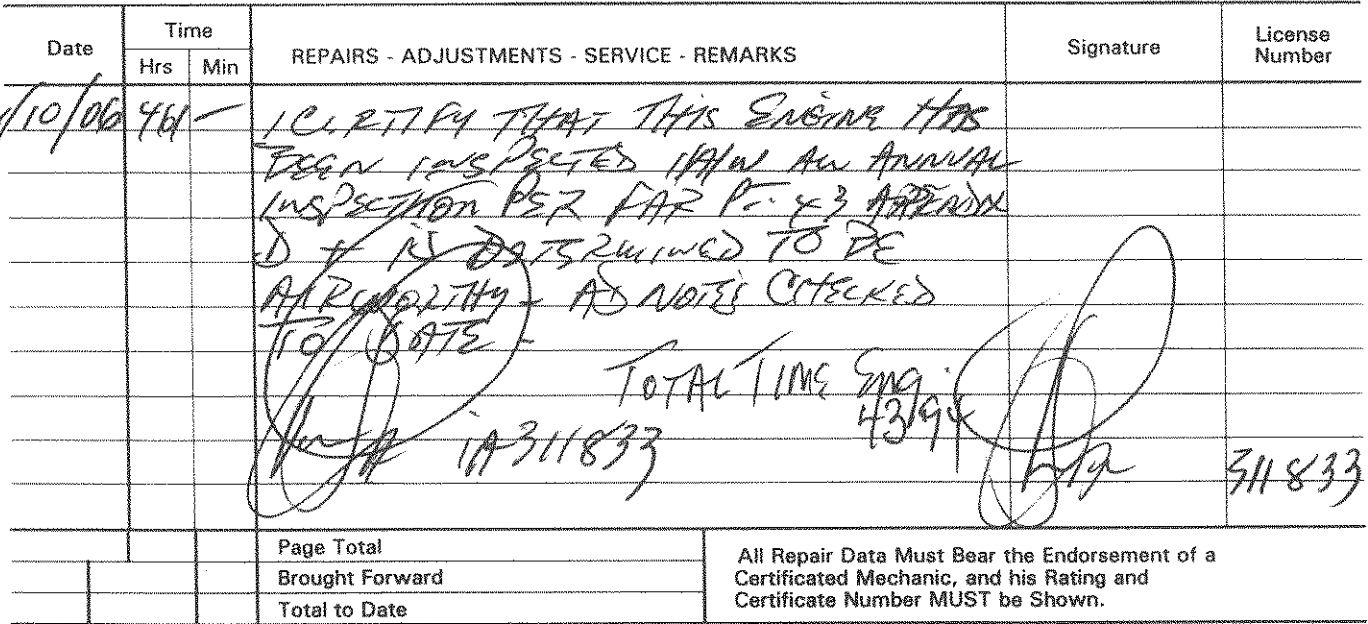 Date Time REPAIRS - ADJUSTMENTS - SERVICE - REMARKS Signature License Number
Hrs Min
/10/06 461 – I CERTIFY THAT THIS ENGINE HAS
BEEN INSPECTED I/A/W AN ANNUAL
INSPECTION PER FAR PT. 43 APPENDIX
D + IS DETERMINED TO BE
AIRWORTHY - AD NOTES CHECKED
TO DATE -
TOTAL TIME ENG.
4394
IA311833 311833
Page Total
Brought Forward
Total to Date
All Repair Data Must Bear the Endorsement of a
Certificated Mechanic, and his Rating and
Certificate Number MUST be Shown.